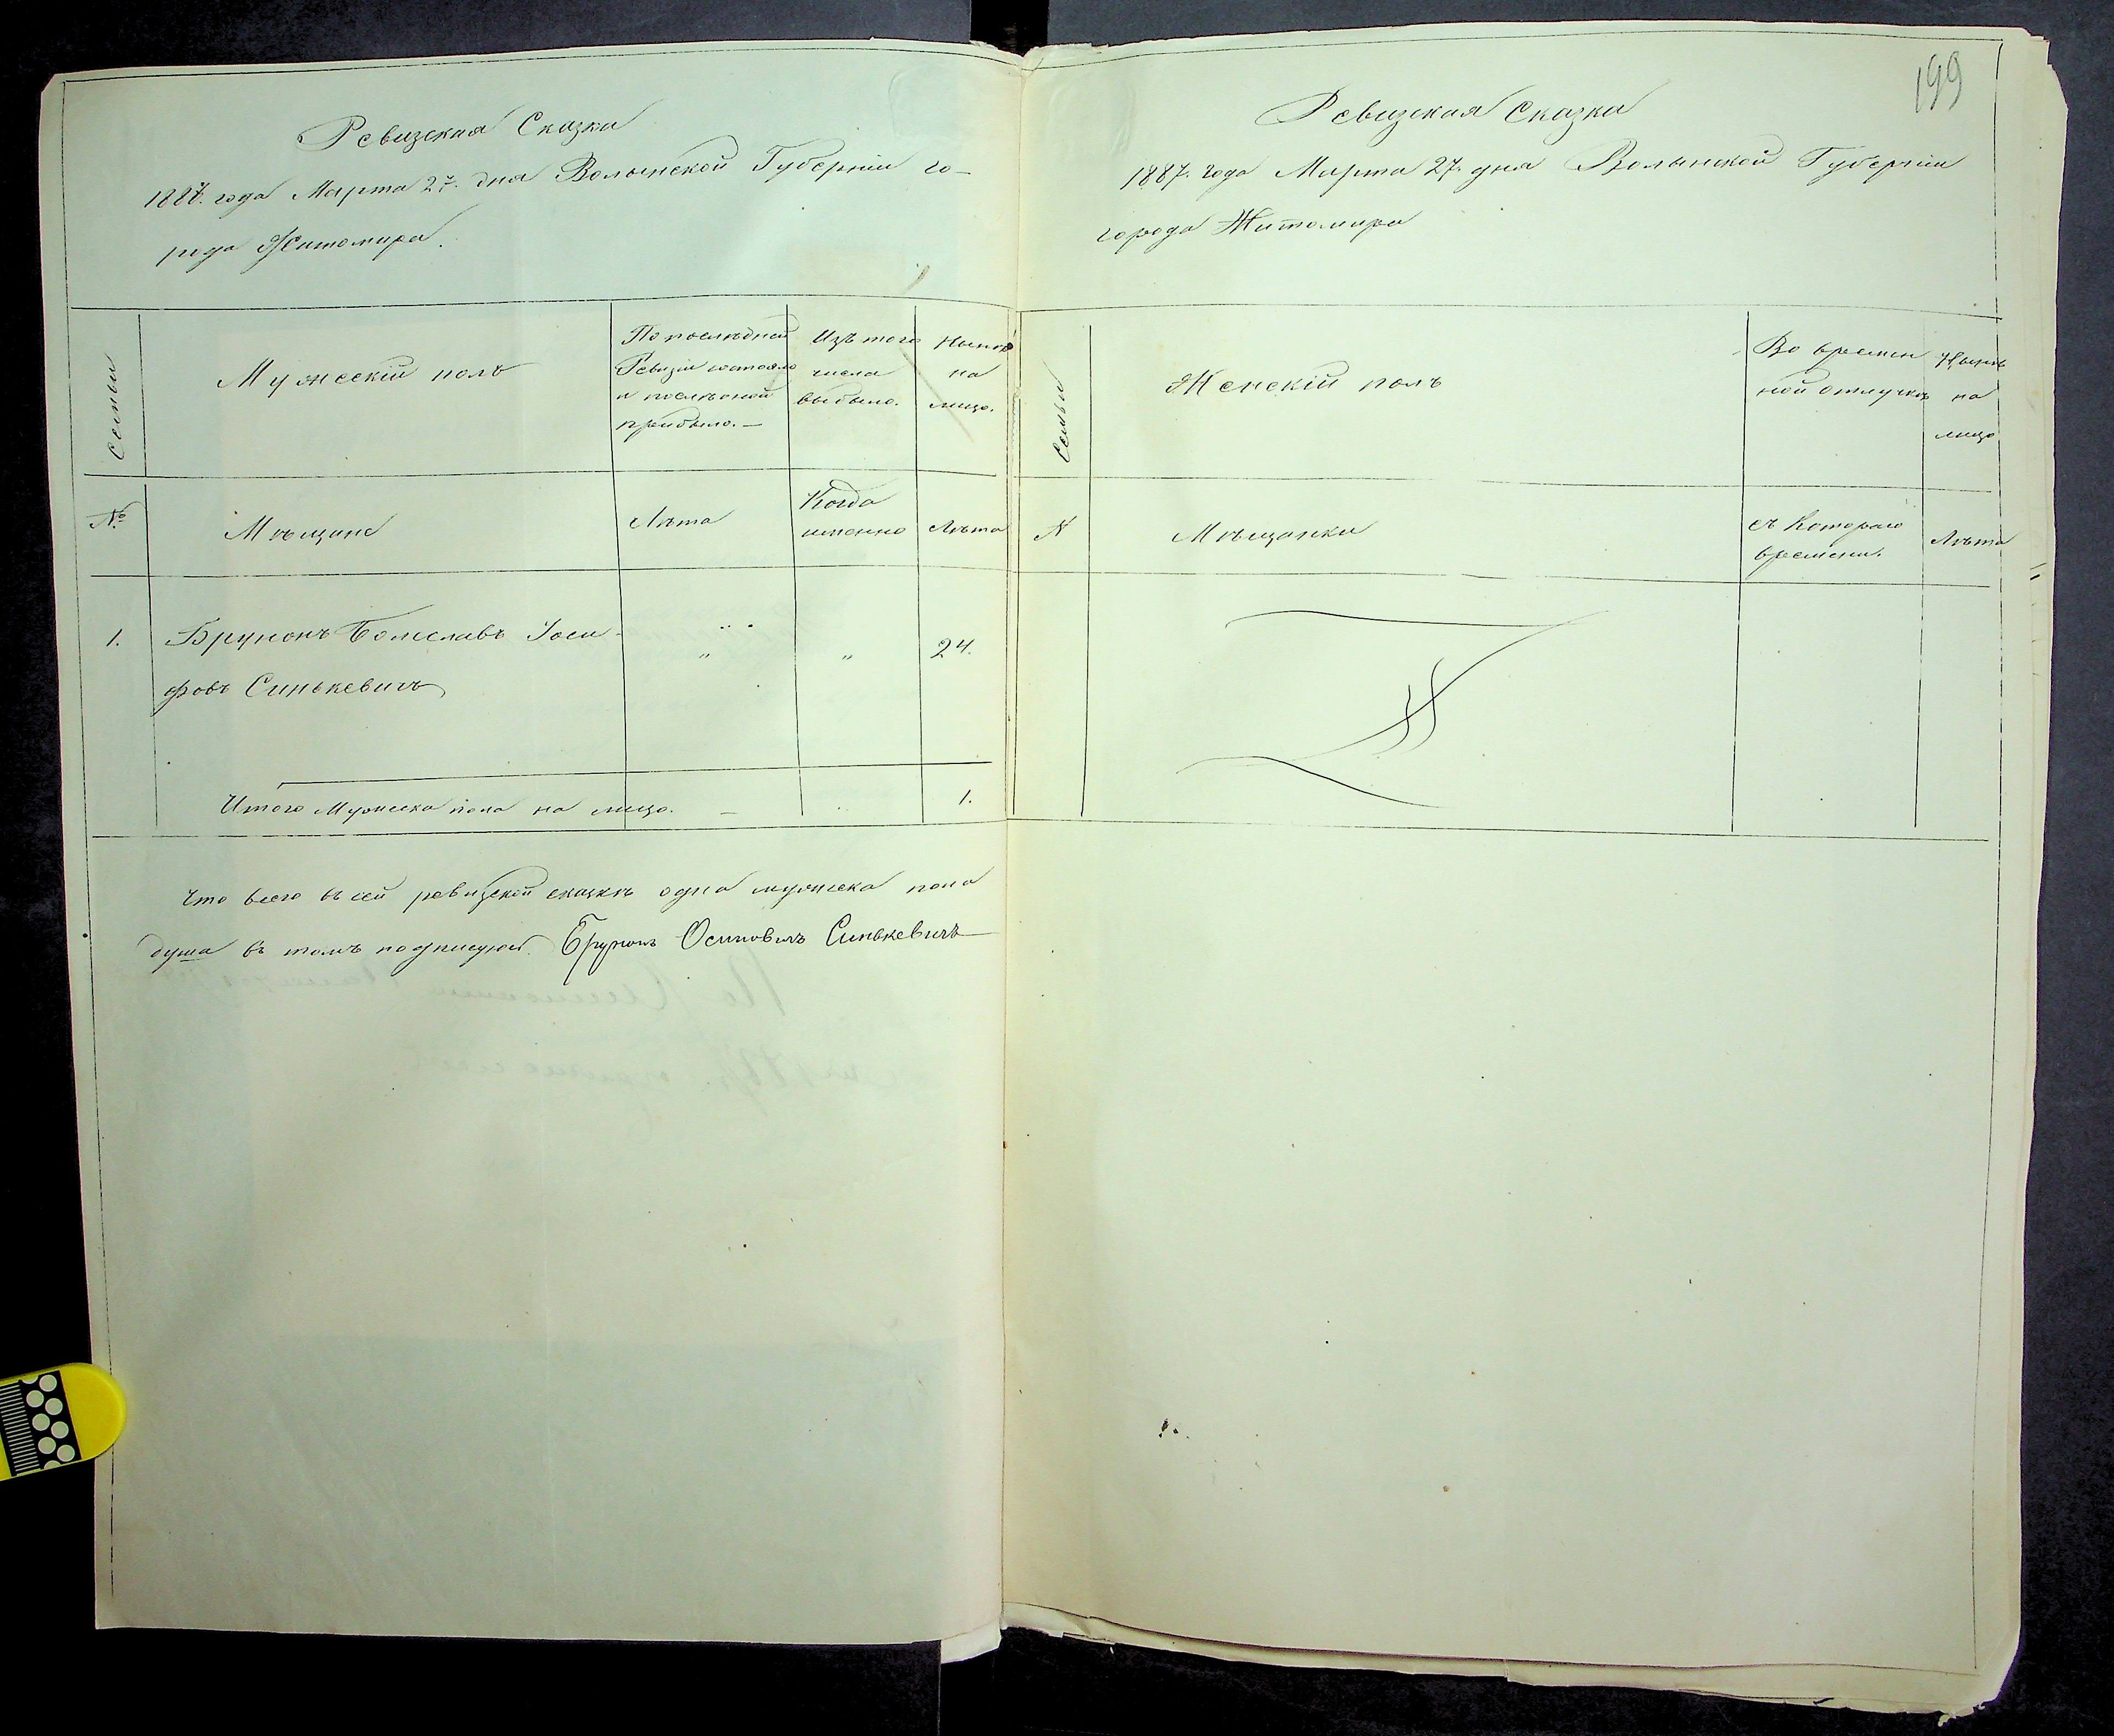 Ревизская Сказка
1887. года Марта 27. дня Волынской Губерніи го-
рода Житомира.
Семьи
Мужескій полъ
По послѣдней
Ревизіи состояло
и послѣ оной
прибыло.—
Изъ того
числа
выбыло.
Нынѣ
на
лицо.
№
Мѣщане
Лѣта
Когда
именно
Лѣта
1.
Брунонъ Болеславъ Іоси-
фовъ Синькевичъ
24.
Итого Мужеска пола на лицо. —
1.
Что всего въ сей ревизской сказкѣ одна мужеска пола
душа въ томъ подписуюсь Брунонъ Осиповичъ Синькевичъ
199
Ревизская Сказка
1887. года Марта 27. дня Волынской Губерніи
города Житомира
Семьи
Женскій полъ
Во времен
ной отлучкѣ
Нынѣ
на
лицо
N
Мѣщанки
съ Котораго
времени.
Лѣта